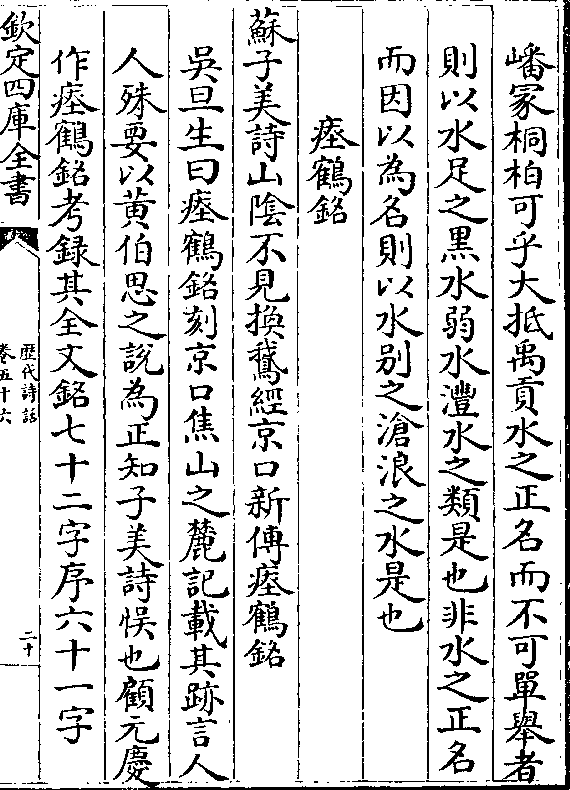 嶓冢桐柏可乎大抵禹貢水之正名而不可單舉者
則以水足之黑水弱水灃水之類是也非水之正名
而因以為名則以水别之滄浪之水是也
瘞鶴銘
蘇子美詩山陰不見換鵞經京口新傳瘞鶴銘
吳旦生曰瘞鶴銘刻京口焦山之麓記載其跡言人
人殊要以黄伯思之說為正知子美詩悞也顧元慶
作瘞鶴銘考録其全文銘七十二字序六十一字
欽定四庫全書
歴代詩話
卷五十六
二十